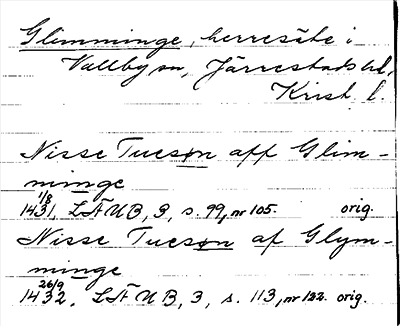 Glimminge, herresäte i
Vallby sn, Järrestads hd,
Krist. l.
Nisse Tuesøn aff Glim-
minge
1/8
1431, LÄUB, 3, s. 99, nr 105. orig.
Nisse Tuesøn af Glym-
minge
26/9
1432, LÄUB, 3, s. 113, nr 122. orig.